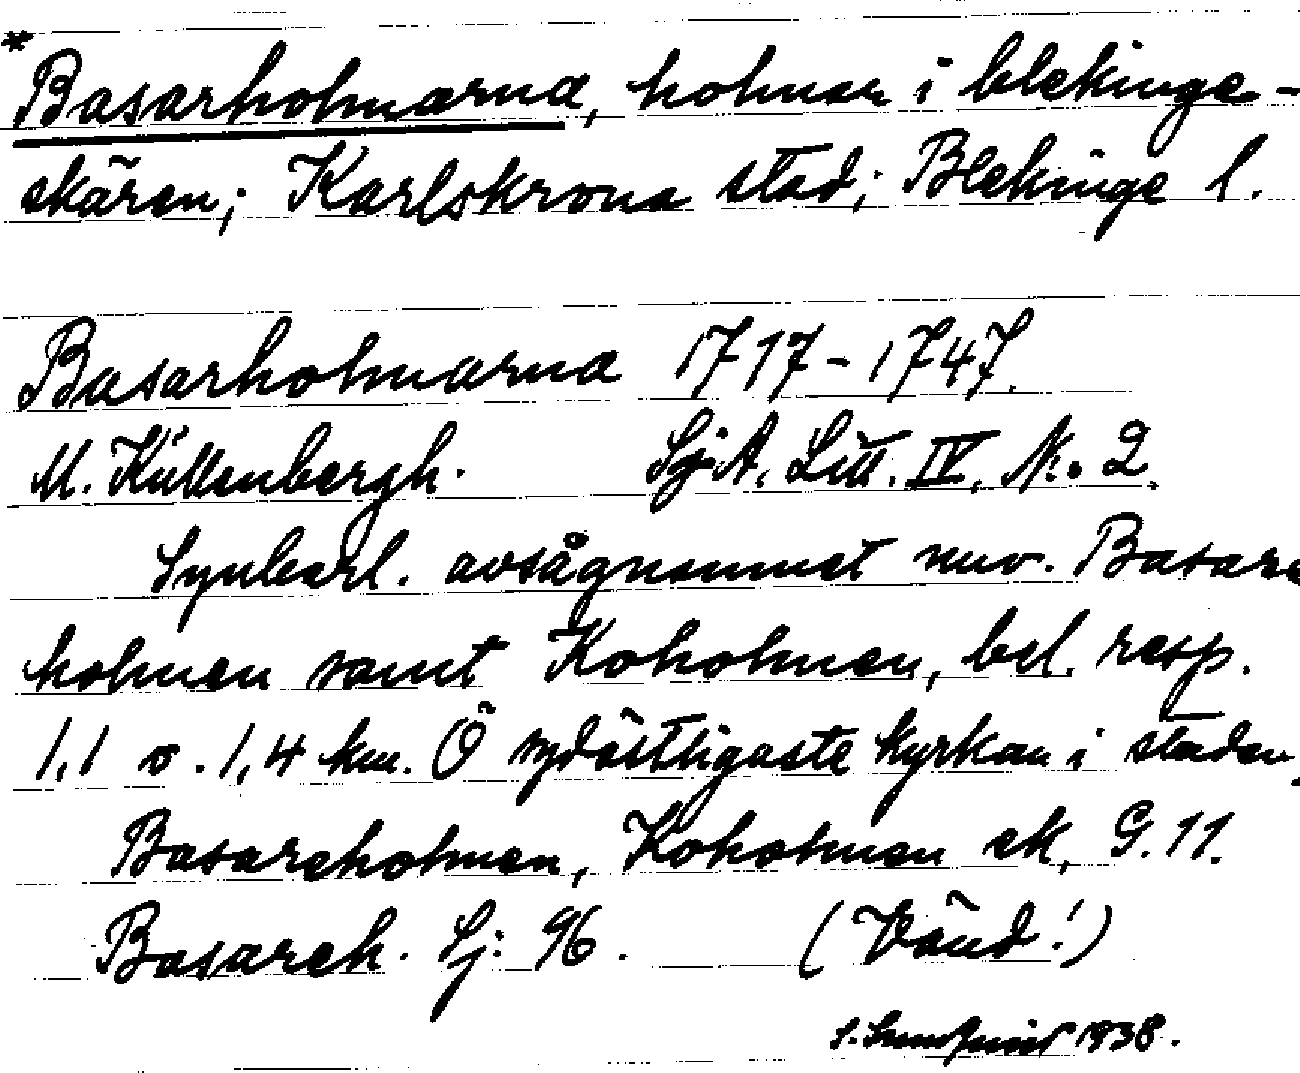 *Basarholmarna, holmar i blekinge-
skären; Karlskrona stad; Blekinge l.
Basarholmarna 1717-1747.
M. Küllenbergh. Sj.A. Litt. IV, Nr. 2.
Synbarl. avsågnammet nuv. Basare
holmen samt Koholmen, bel. resp.
1,1 o. 1,4 km. Ö sydöstligaste kyrkan i staden,
Basareholmen, Koholmen ek. G. 11.
Basareh. Sj: 96. (Vänd!)
1938.